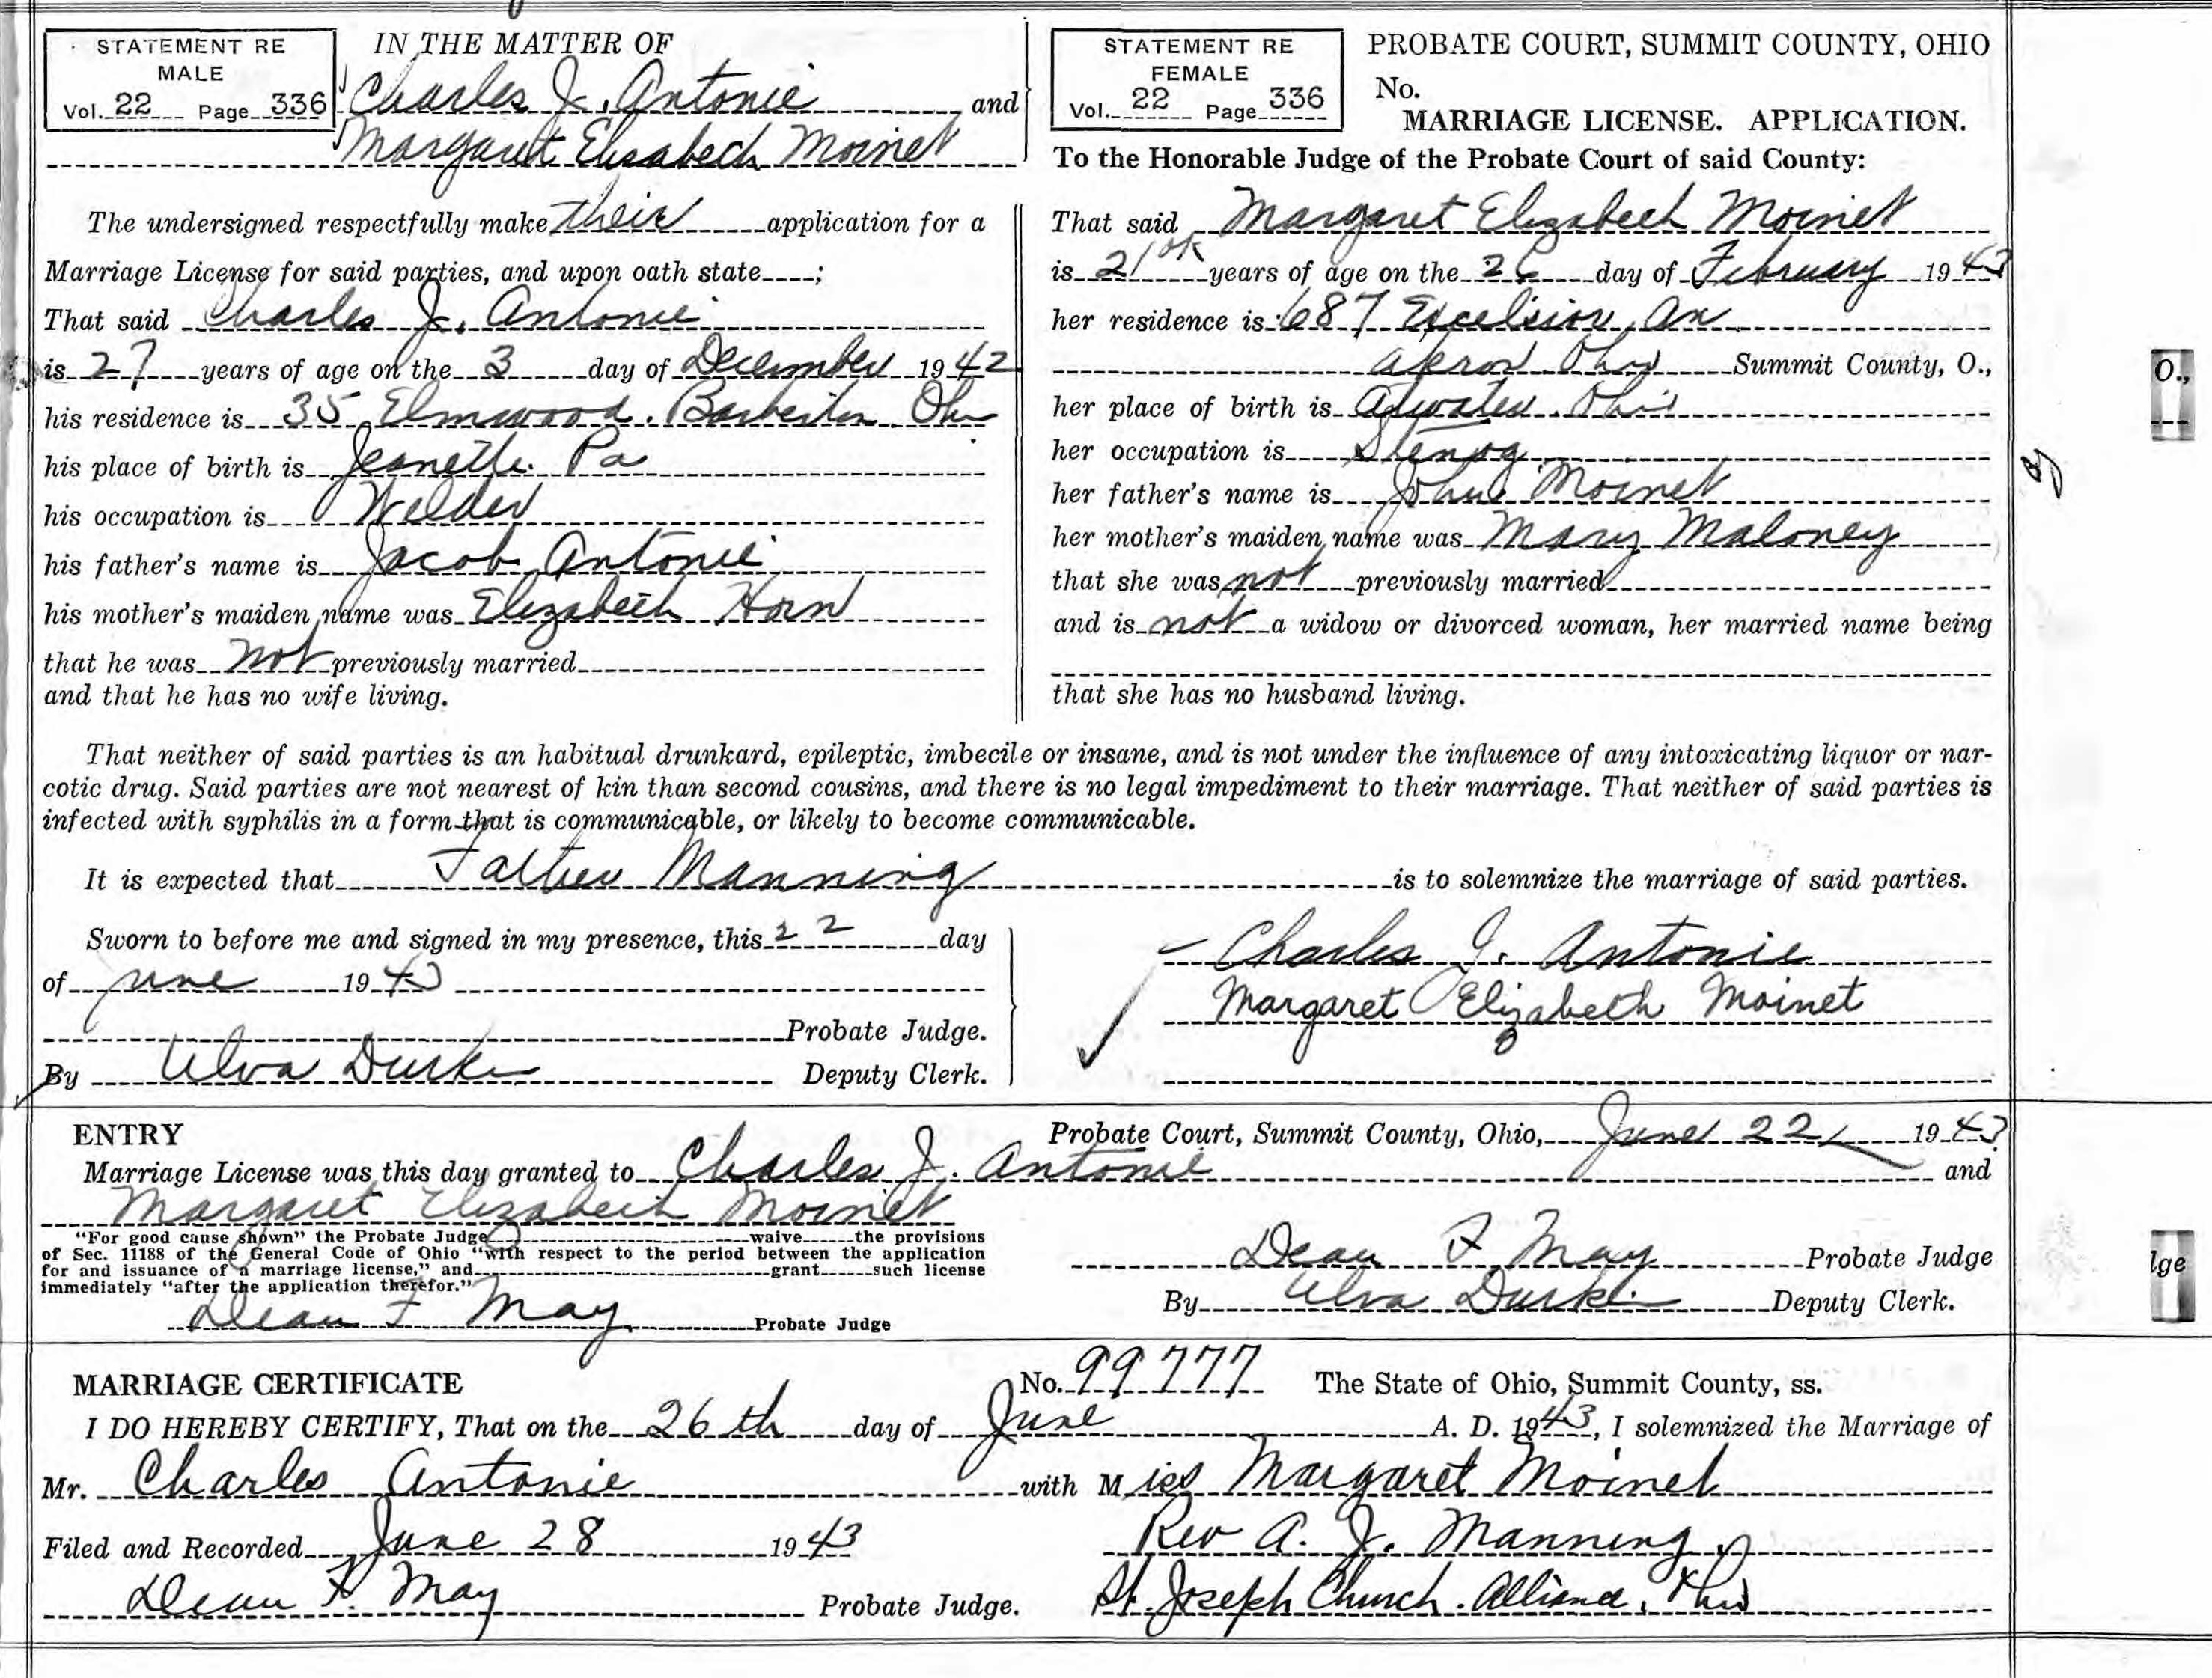 STATEMENT RE
MALE
Vol. 22 Page 336
IN THE MATTER OF
Charles J. Antonie and
Margaret Elizabeth Moinet
The undersigned respectfully make their application for a
Marriage License for said parties, and upon oath state ;
That said Charles J. Antonie
is 27 years of age on the 3 day of December 1942
his residence is 35 Elmwood. Barberton Ohio
his place of birth is Jeanette. Pa
his occupation is Welder
his father's name is Jacob Antonie
his mother's maiden name was Elizabeth Horn
that he was not previously married
and that he has no wife living.
STATEMENT RE
FEMALE
Vol. 22 Page 336
PROBATE COURT, SUMMIT COUNTY, OHIO
No.
MARRIAGE LICENSE. APPLICATION.
To the Honorable Judge of the Probate Court of said County:
That said Margaret Elizabeth Moinet
is 21 ok years of age on the 26 day of February 1943
her residence is 687 Excelsior Av
Akron Ohio Summit County, O.,
her place of birth is Atwater. Ohio
her occupation is Stenog
her father's name is John Moinet
her mother's maiden name was Mary Maloney
that she was not previously married
and is not a widow or divorced woman, her married name being
that she has no husband living.
That neither of said parties is an habitual drunkard, epileptic, imbecile or insane, and is not under the influence of any intoxicating liquor or nar-
cotic drug. Said parties are not nearest of kin than second cousins, and there is no legal impediment to their marriage. That neither of said parties is
infected with syphilis in a form that is communicable, or likely to become communicable.
It is expected that Father Manning is to solemnize the marriage of said parties.
Sworn to before me and signed in my presence, this 22 day
of June 1943
Probate Judge.
By Ulva Durkin Deputy Clerk.
Charles J. Antonie
Margaret Elizabeth Moinet
ENTRY
Probate Court, Summit County, Ohio, June 22 1943
Marriage License was this day granted to Charles J. Antonie and
Margaret Elizabeth Moinet
"For good cause shown" the Probate Judge waive the provisions
of Sec. 11188 of the General Code of Ohio "with respect to the period between the application
for and issuance of a marriage license," and grant such license
immediately "after the application therefor."
Dean F May Probate Judge
Dean F May Probate Judge
By Ulva Durkin Deputy Clerk.
MARRIAGE CERTIFICATE
No. 99777 The State of Ohio, Summit County, ss.
I DO HEREBY CERTIFY, That on the 26th day of June A. D. 1943, I solemnized the Marriage of
Mr. Charles Antonie with Miss Margaret Moinet
Filed and Recorded June 28 1943
Rev A. J. Manning
Dean F. May Probate Judge.
St. Joseph Church. Alliance, Ohio
O.,
lge